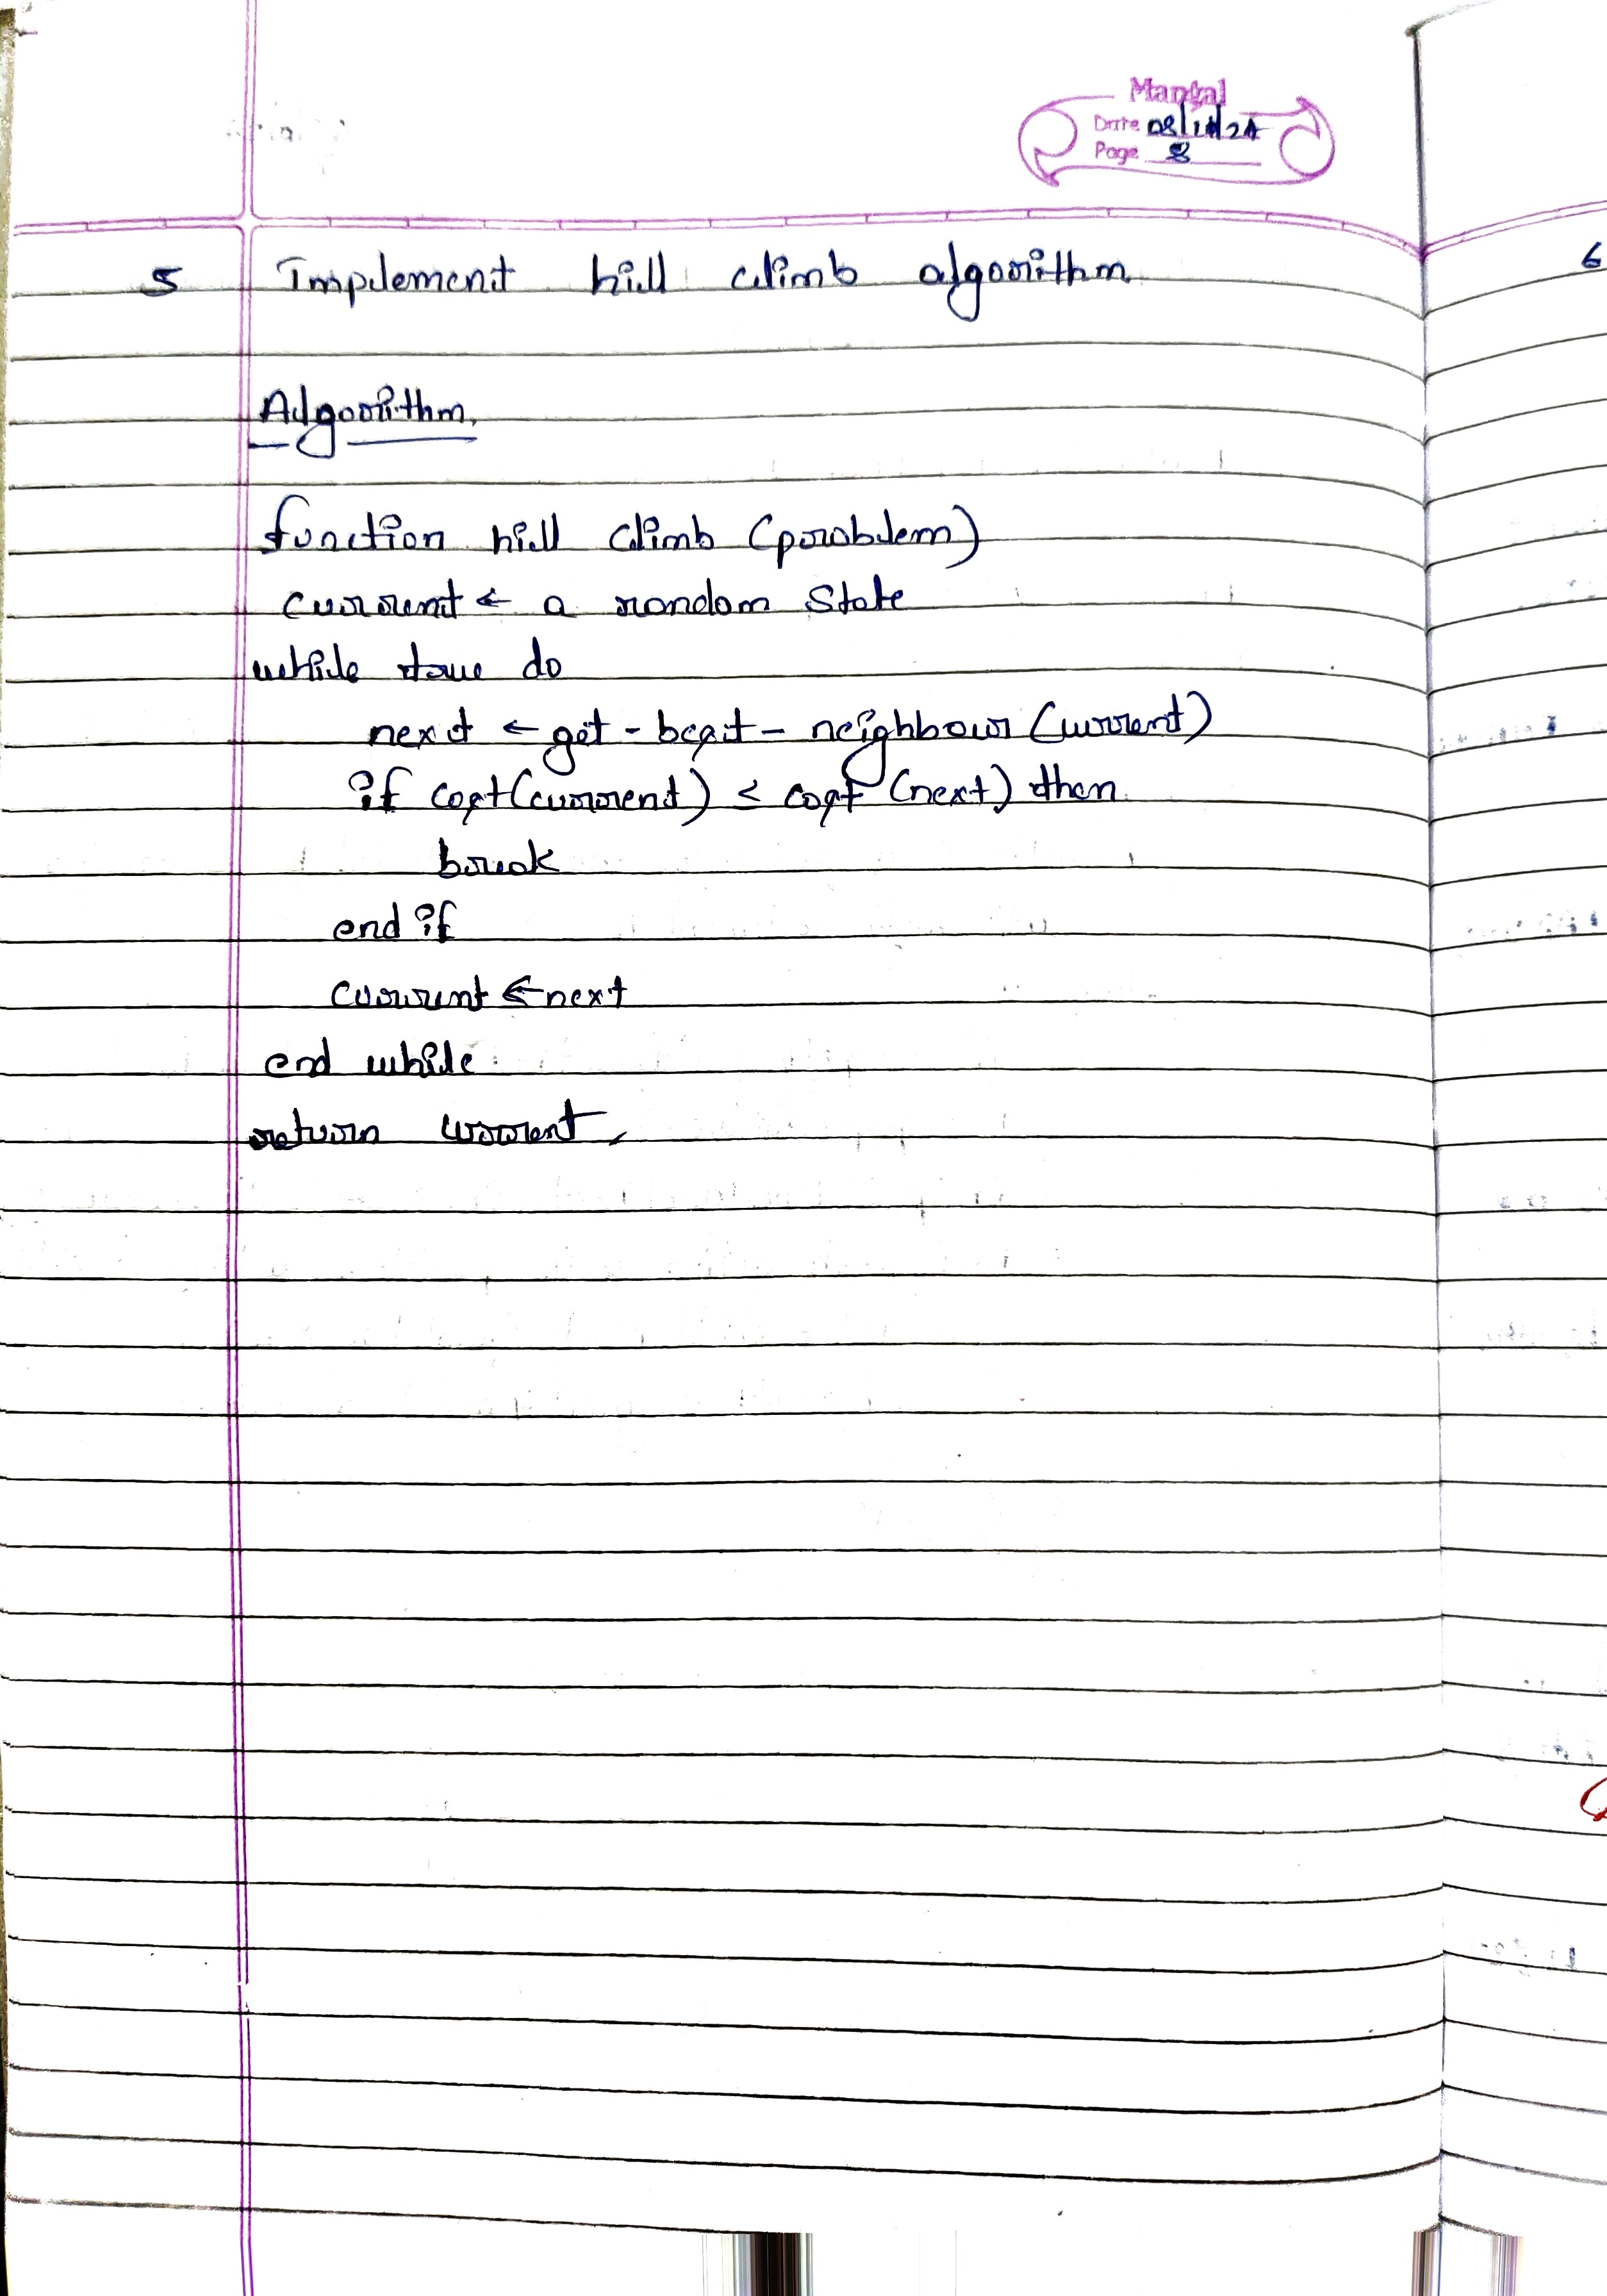 Mangal
Date 08/11/24
Page 8
5 Implement hill climb algorithm
6
Algorithm,
function hill climb (problem)
current ← a random state
while true do
next ← get - best - neighbour (current)
if cost(current) ≤ cost (next) then
break
end if
current ← next
end while
return current,